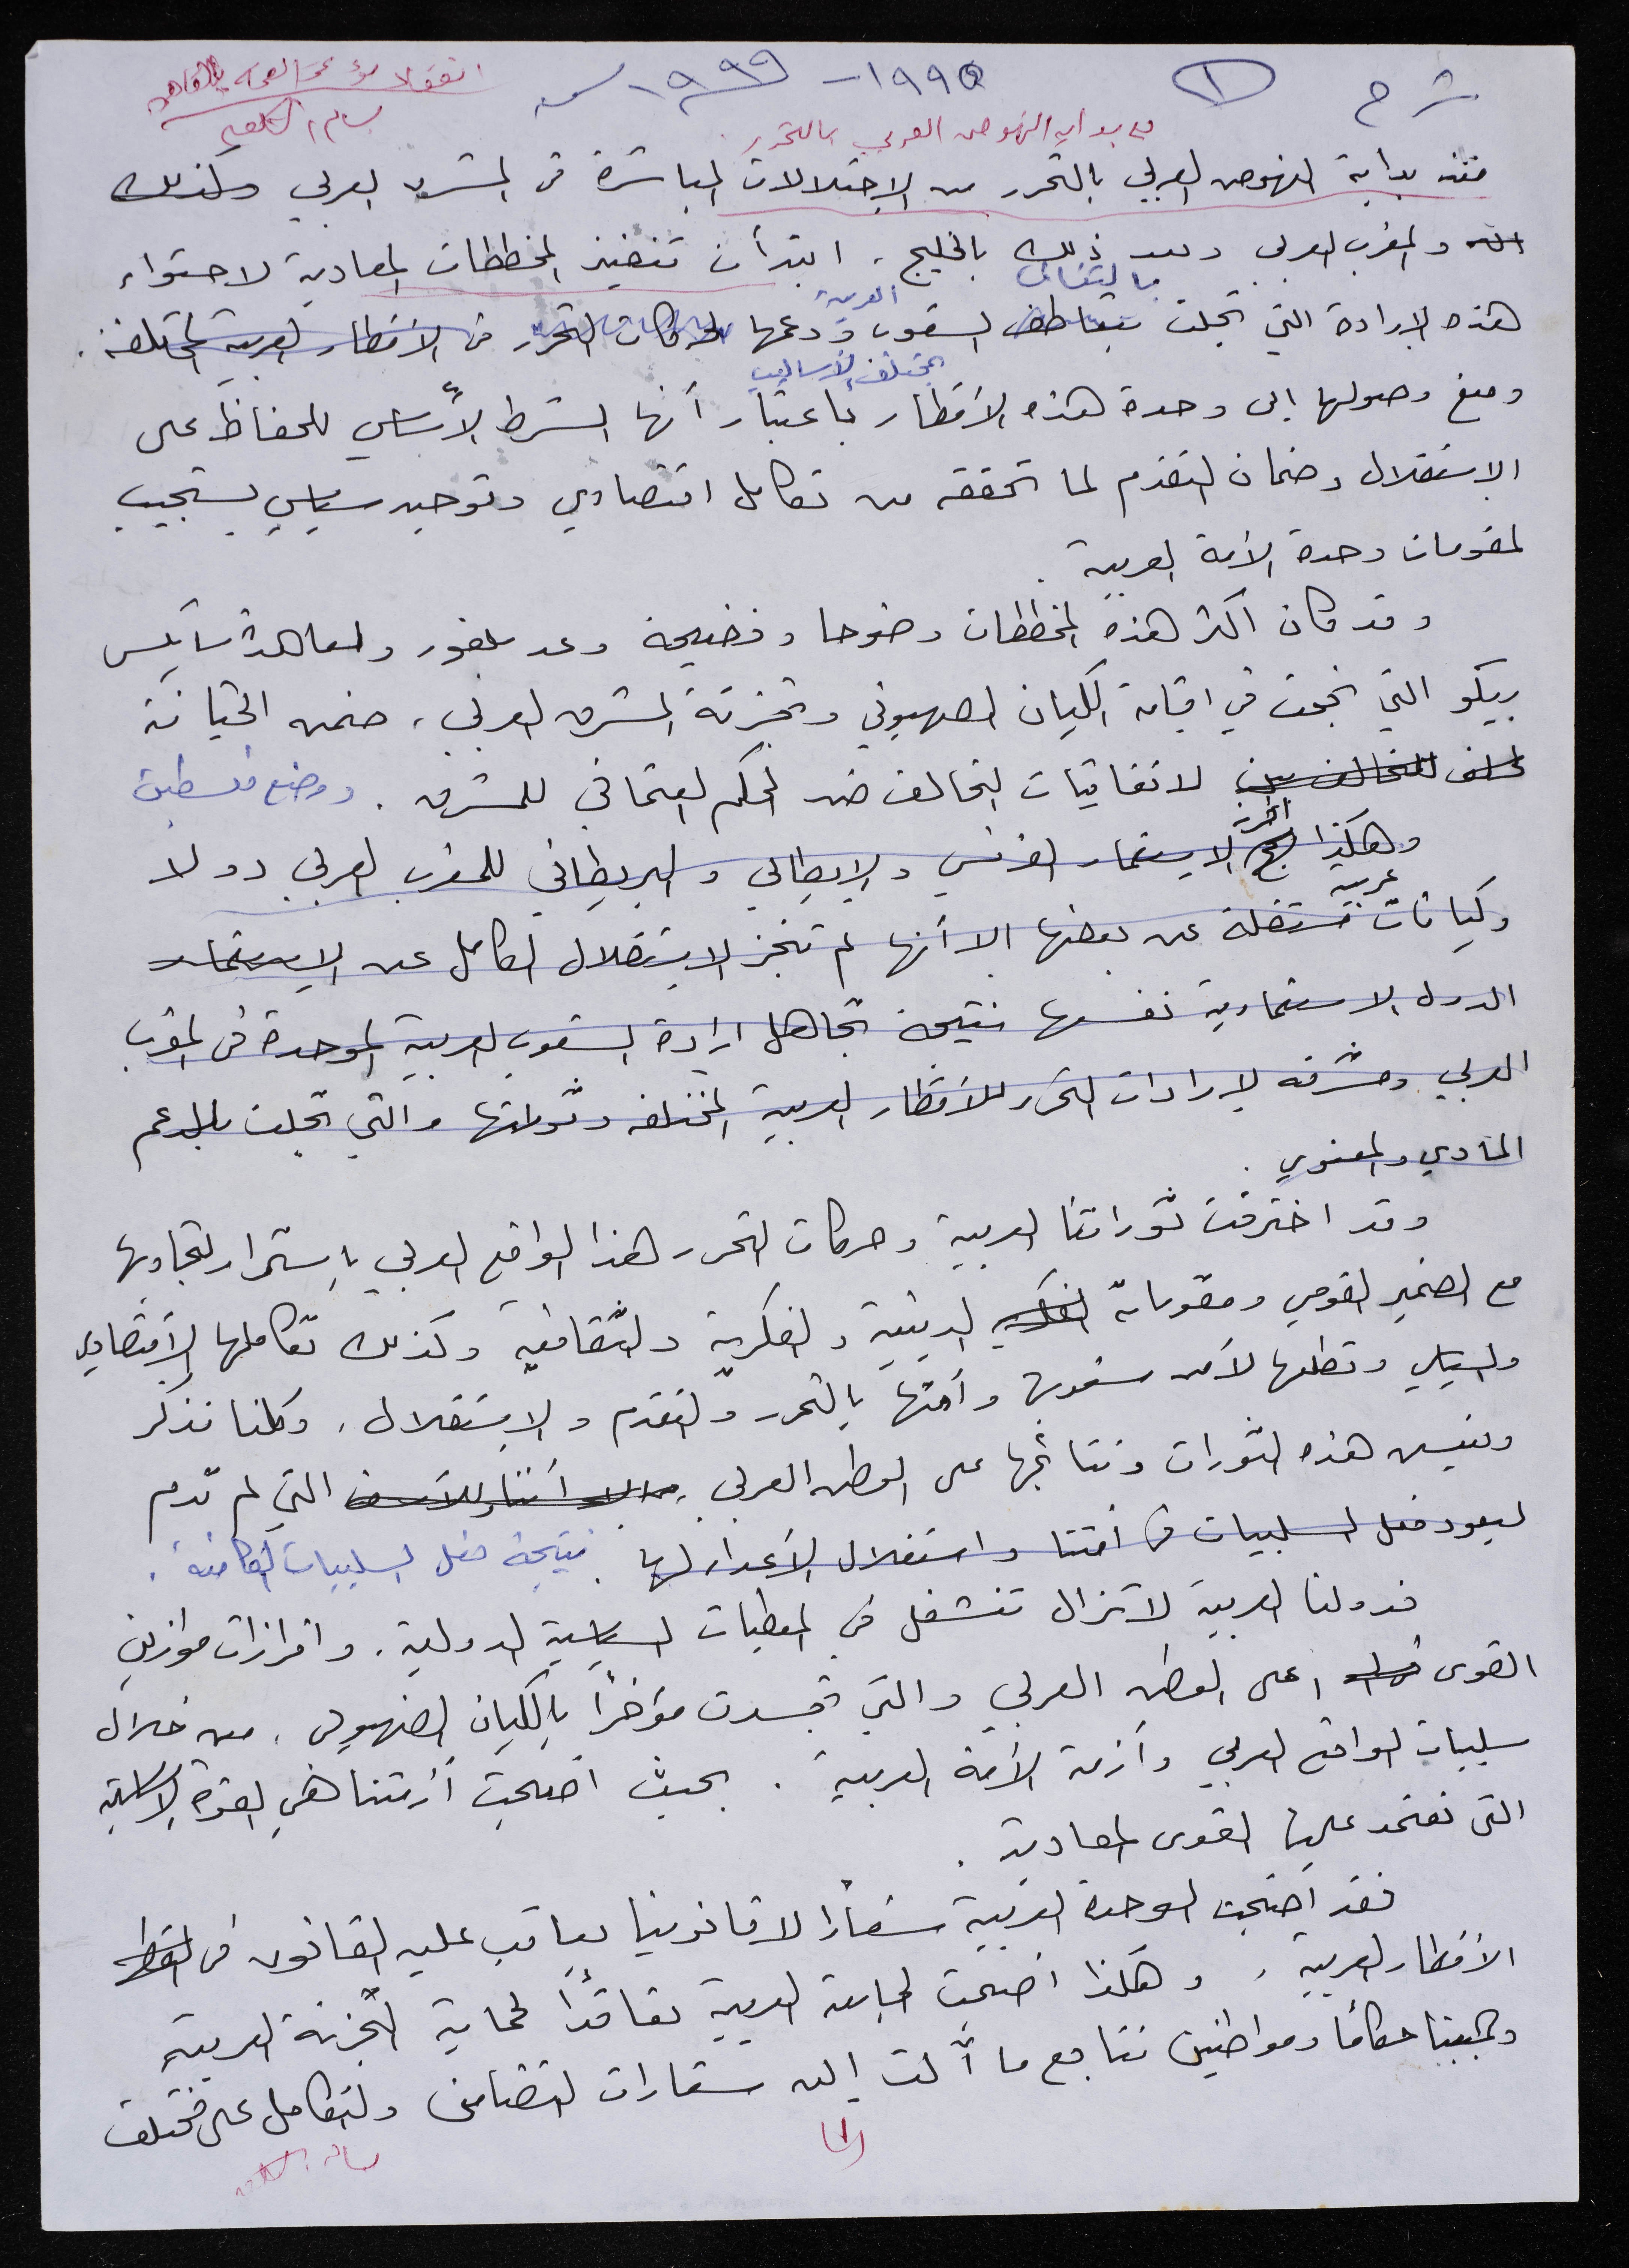 شرح
١
١٩٩٥ - ١٩٩٩
مع بداية النهوض العربي بالتحرر
منذ بداية النهوض العربي بالتحرر من الاحتلالات المباشرة في المشرق العربي وكذلك
والمغرب العربي وبعد ذلك بالخليج، ابتدأت تنفيذ المخططات المعادية لاحتواء
بالتفاف العربية
هذه الارادة التي تجلت بتعاطف الشعوب ودعمها لحركات التحرر في الأقطار العربية المختلفة.
بمختلف الأساليب
ومنع وصولها إلى وحدة هذه الأقطار باعتبار أنها الشرط الأساسي للحفاظ على
الاستقلال وضمان التقدم لما تحققه من تكامل اقتصادي وتوحيد سياسي يستجيب
لمقومات وحدة الأمة العربية.
وقد كان أكثر هذه المخططات وضوحا وفضيحة وعد بلفور ومعاهدة سايكس
بيكو التي نجحت في اقامة الكيان الصهيوني وتجزئة المشرق العربي، ضمن الخيانة
لاتفاقيات التحالف ضد الحكم العثماني للمشرق. ووضع فلسطين
وهكذا الاستعمار الفرنسي والايطالي والبريطاني للمغرب العربي دولا
عربية
وكيانات مستقلة عن بعضها الا أنها لم تنجز الاستقلال الكامل عن الاستعمار
الدول الاستعمارية نفسها نتيجة تجاهل ارادة الشعوب العربية الموحدة في المغرب
العربي ومشرقه لإرادات التحرر للأقطار العربية المختلفة وثوراتها والتي تجلت بالدعم
المادي والمعنوي.
وقد اخترقت ثوراتنا العربية وحركات التحرر هذا الواقع العربي باستمرار لتجاوبها
مع الضمير القومي ومقوماته الدينية والفكرية والثقافية وكذلك تكاملها الاقتصادي
والسياسي وتطلعها لأمن شعوبها وأمتها بالتحرر والتقدم والاستقلال، وكلنا نذكر
ونعيش هذه الثورات ونتائجها على الوطن العربي، إلا أننا وللأسف التي لم تدم
ليعود فعل السلبيات في أمتنا واستغلال الأعداء لها. نتيجة فعل السلبيات الكامنة.
فدولنا العربية لا تزال تنشغل في المعطيات السياسية الدولية، وافرازات موازين
القوى على الوطن العربي والتي تجسدت مؤخراً بالكيان الصهيوني، من خلال
سلبيات الواقع العربي وأزمة الأمة العربية. بحيث أصبحت أزمتنا هي القوة الأساسية
التي تعتمد عليها القوى المعادية.
فقد أصبحت الوحدة العربية شعاراً لا قانونيا يعاقب عليه القانون في
الأقطار العربية، وهكذا أصبحت الجامعة العربية تعاقداً لحماية التجزئة العربية
وجميعنا حكاماً ومواطنين نتابع ما آلت إليه شعارات التضامن والتكامل على مختلف
(١)